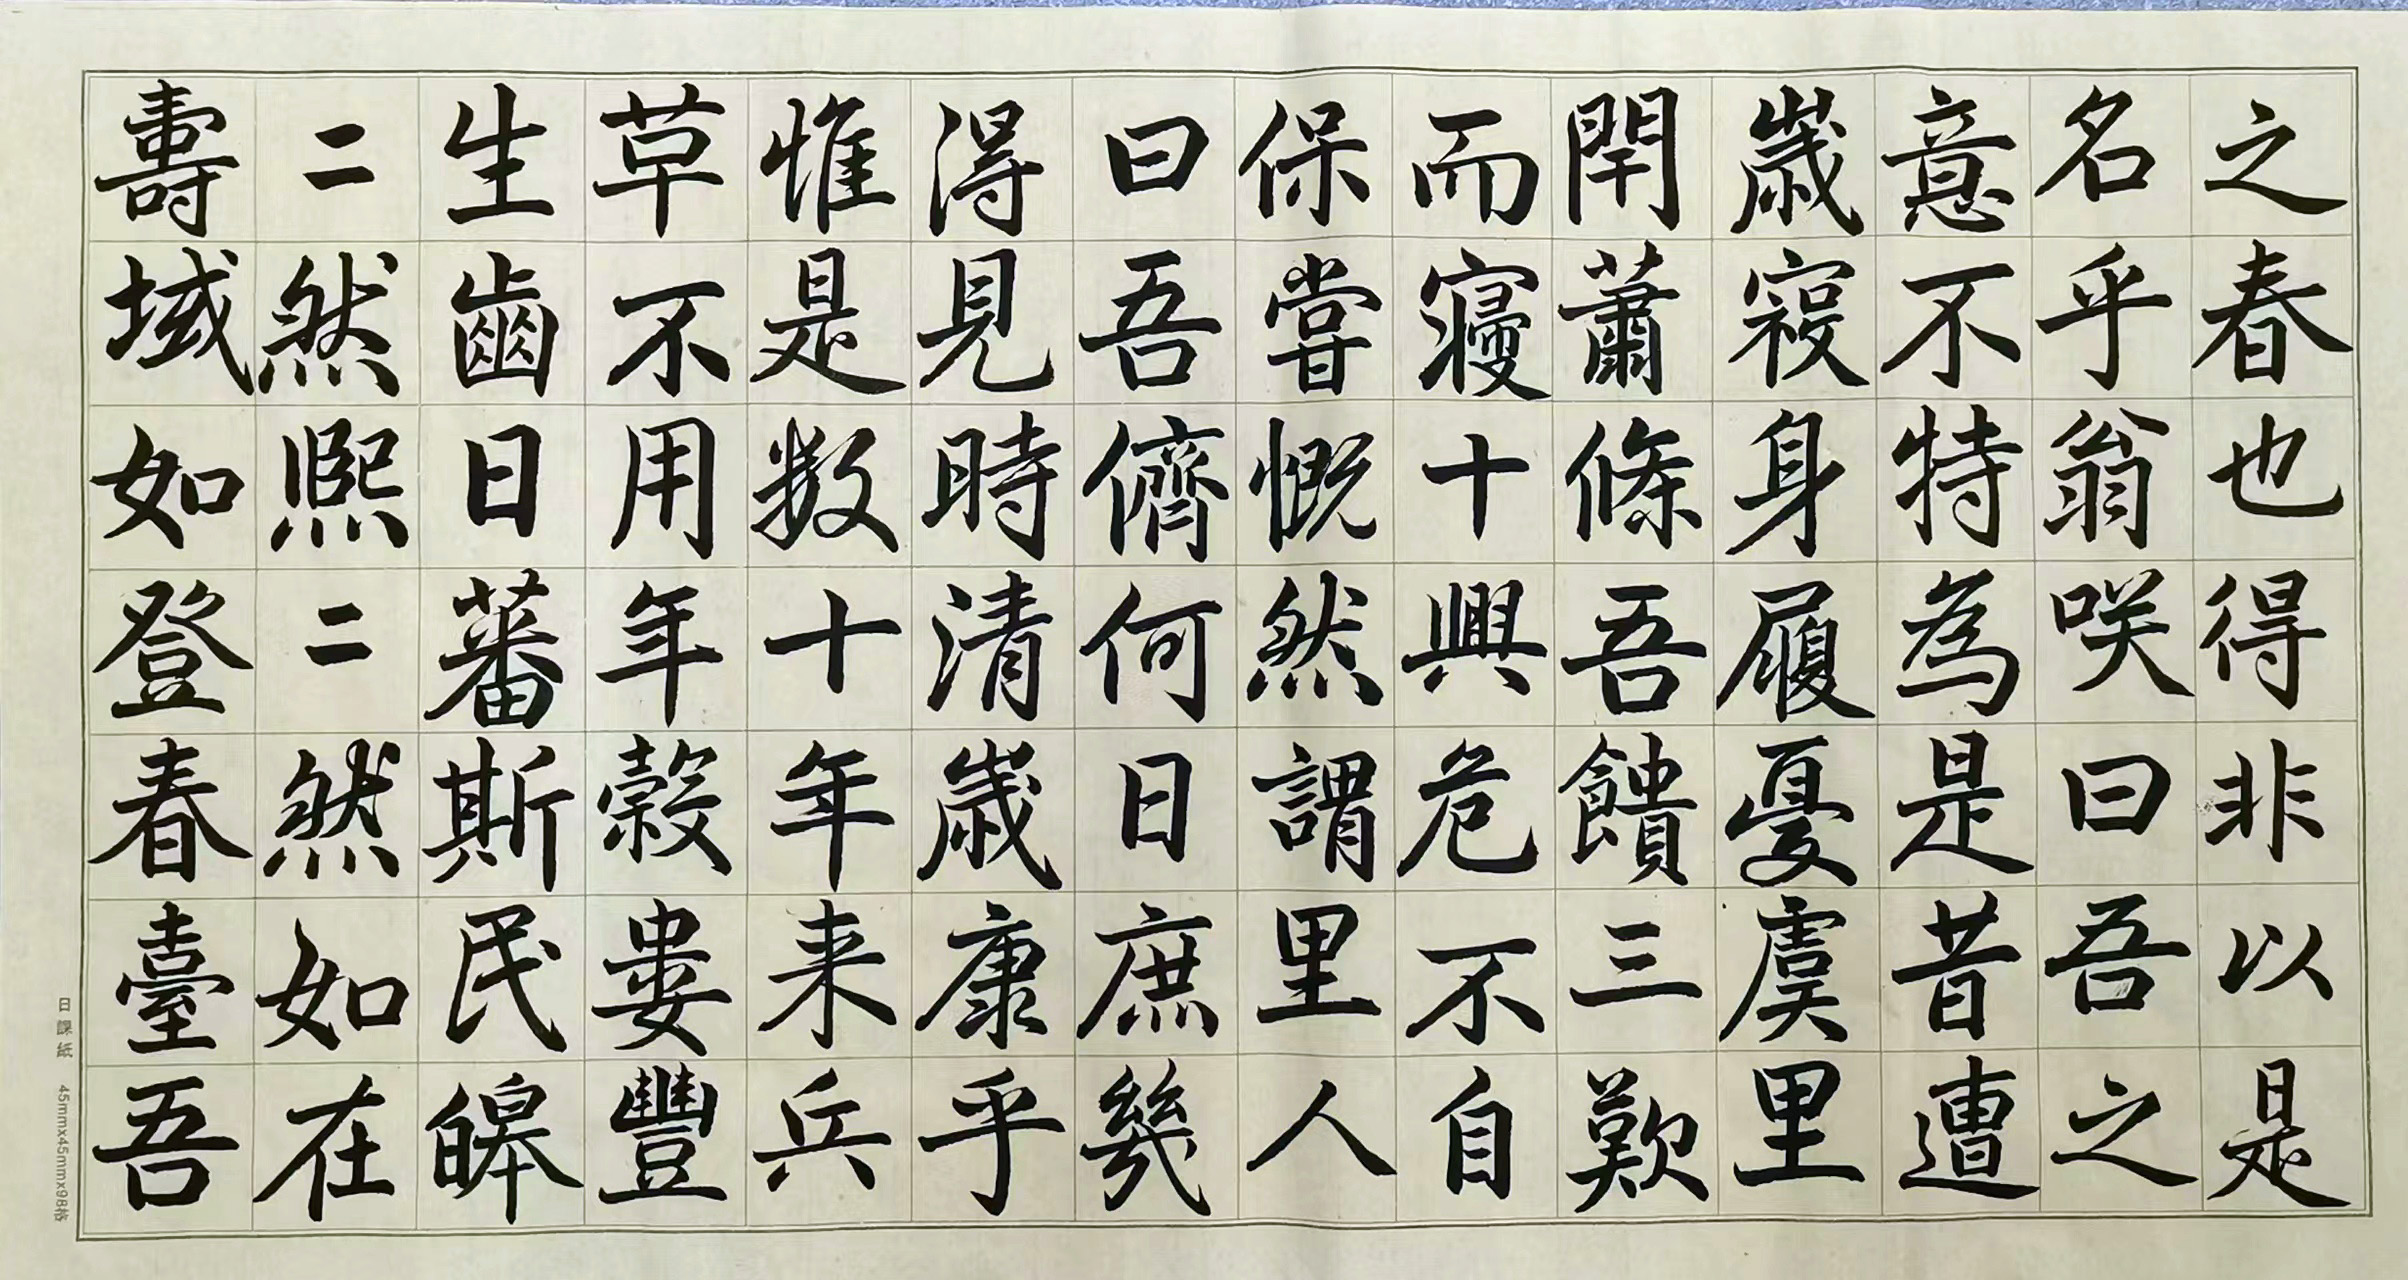 之春也得非以是
名乎翁咲曰吾之
意不特為是昔遭
歲祲身履憂虞里
閈蕭條吾饋三歎
而寢十興危不自
保嘗慨然謂里人
曰吾儕何日庶幾
得見時清歲康乎
惟是数十年来兵
草不用年穀婁豐
生齒日蕃斯民皞
二然熙二然如在
壽域如登春臺吾
日課紙 45mmx45mmx98格